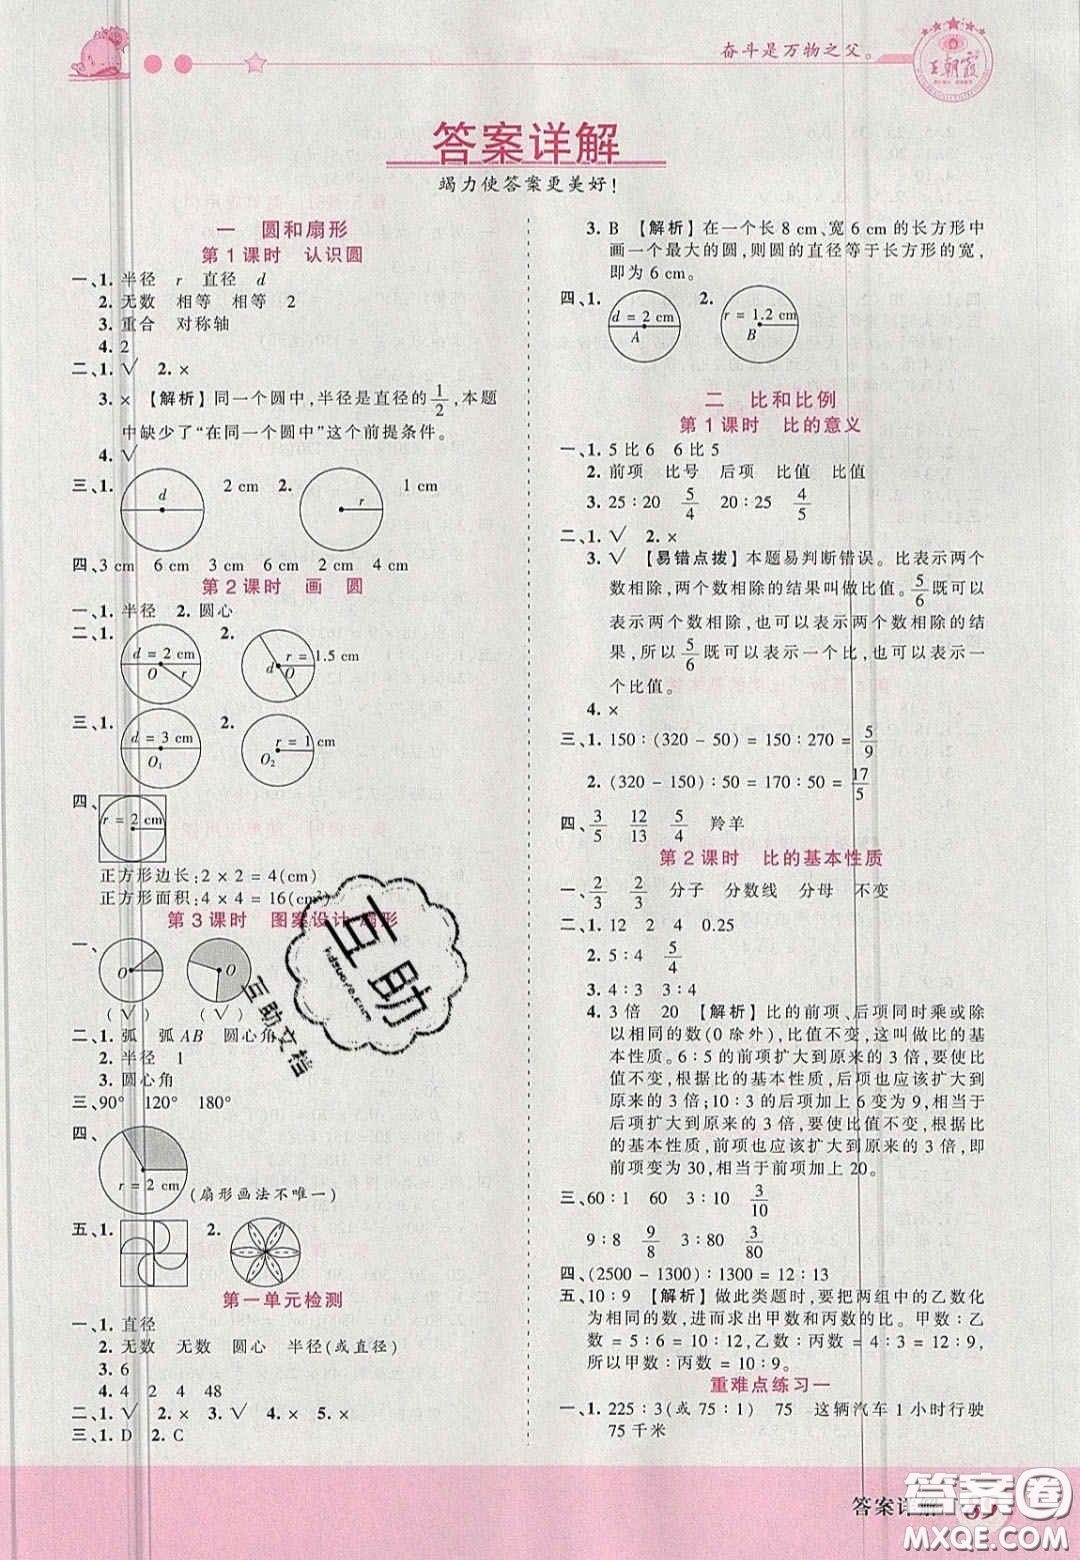 奋斗是万物之父。
王朝霞
答案详解
竭力使答案更美好!
一 圆和扇形
第1课时 认识圆
一、1. 半径 r 直径 d
2. 无数 相等 相等 2
3. 重合 对称轴
4. 2
二、1. √ 2. ×
3. × 【解析】同一个圆中,半径是直径的1/2,本题
中缺少了“在同一个圆中”这个前提条件。
4. √
三、1. d 2 cm 2. r 1 cm
四、3 cm 6 cm 3 cm 6 cm 4 cm 4 cm
第2课时 画 圆
一、1. 半径 2. 圆心
二、1. d = 2 cm O r 2. r = 1.5 cm d O
三、1. d = 3 cm O₁ 2. r = 1 cm O₂
四、r = 2 cm
正方形边长:2 × 2 = 4(cm)
正方形面积:4 × 4 = 16(cm²)
第3课时 图案设计 扇形
一、 O O
(√) (√)
二、1. 弧 弧AB 圆心角
2. 半径 1
3. 圆心角
三、90° 120° 180°
四、r = 2 cm (扇形画法不唯一)
五、1. 2.
第一单元检测
一、1. 直径
2. 无数 无数 圆心 半径(或直径)
3. 6
4. 4 2 4 48
二、1. √ 2. × 3. √ 4. × 5. ×
三、1. D 2. C
3. B 【解析】在一个长 8 cm、宽 6 cm 的长方形中
画一个最大的圆,则圆的直径等于长方形的宽,
即为 6 cm。
四、1. d = 2 cm A 2. r = 1.2 cm B
二 比和比例
第1课时 比的意义
一、1. 5比6 6比5
2. 前项 比号 后项 比值 比值
3. 25∶20 5/4 20∶25 4/5
二、1. √ 2. ×
3. √ 【易错点拨】本题易判断错误。比表示两个
数相除,两个数相除的结果叫做比值。5/6既可以
表示两个数相除,也可以表示两个数相除的结
果,所以5/6既可以表示一个比,也可以表示一
个比值。
4. ×
三、1. 150∶(320 - 50) = 150∶270 = 5/9
2. (320 - 150)∶50 = 170∶50 = 17/5
四、3/5 12/13 5/4 羚羊
第2课时 比的基本性质
一、2/3 2/3 分子 分数线 分母 不变
二、1. 12 2 4 0.25
2. 5∶4 5/4
3. 4∶3
4. 3倍 20 【解析】比的前项、后项同时乘或除
以相同的数(0 除外),比值不变,这叫做比的基
本性质。6∶5的前项扩大到原来的 3 倍,要使比
值不变,根据比的基本性质,后项也应该扩大到
原来的 3 倍;10∶3的后项加上6变为9,相当于
后项扩大到原来的 3 倍,要使比值不变,根据比
的基本性质,前项也应该扩大到原来的 3 倍,即
前项变为30,相当于前项加上20。
三、60∶1 60 3∶10 3/10
9∶8 9/8 3∶80 3/80
四、(2500 - 1300)∶1300 = 12∶13
五、10∶9 【解析】做此类题时,要把两组中的乙数化
为相同的数,进而求出甲数和丙数的比。甲数∶乙
数 = 5∶6 = 10∶12,乙数∶丙数 = 4∶3 = 12∶9,
所以甲数∶丙数 = 10∶9。
重难点练习一
一、1. 225∶3(或 75∶1) 75 这辆汽车 1 小时行驶
75 千米
互助
hdzuoye.com
互助文档
答案详解
答案圈
MXQE.COM